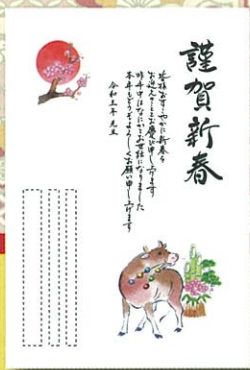 謹賀新春
皆様おすこやかに新春を
お迎えのこととお慶び申し上げます
昨年中はなにかとお世話になりました
本年もどうぞよろしくお願い申し上げます
令和三年 元旦